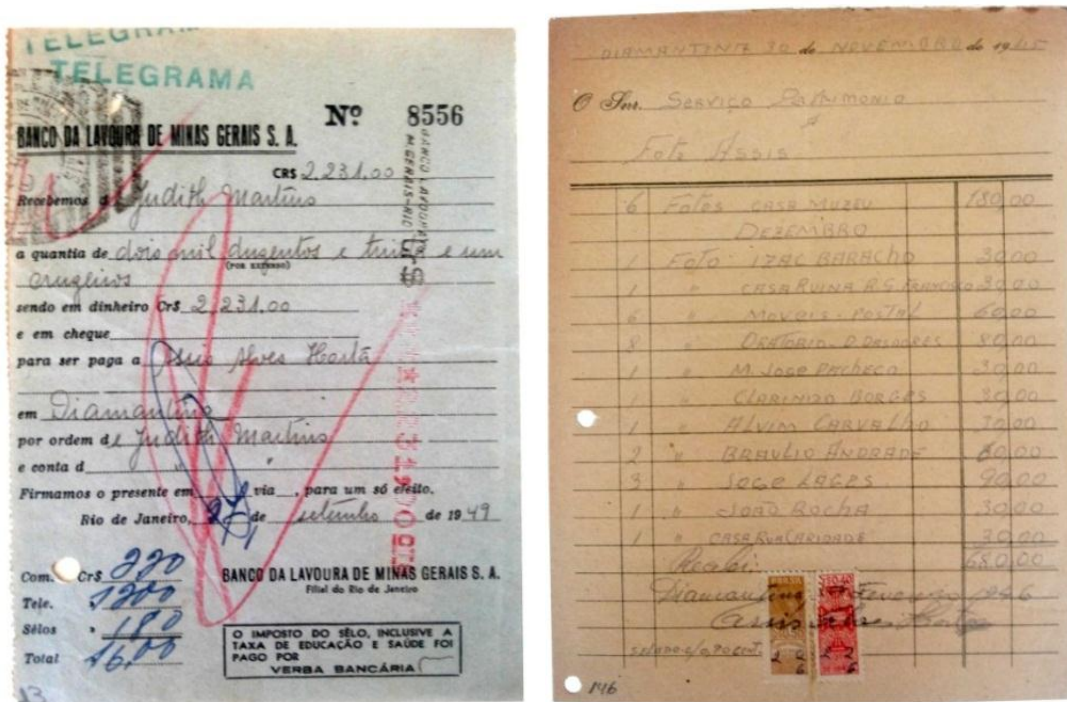 TELEGRAMA
TELEGRAMA
Nº 8556
BANCO DA LAVOURA DE MINAS GERAIS S. A.
CR$ 2.231,00
Recebemos de Judith Martins
a quantia de dois mil duzentos e trinta e um
(POR EXTENSO)
cruzeiros
sendo em dinheiro Cr$ 2.231.00
e em cheque
para ser paga a Assis Alves Horta
em Diamantina
por ordem de Judith Martins
e conta d " "
Firmamos o presente em via, para um só efeito.
Rio de Janeiro, 27 de setembro de 1949
Com. Cr$ 220
Tele. 1200
Sêlos " 180
Total 16,00
BANCO DA LAVOURA DE MINAS GERAIS S. A.
Filial do Rio de Janeiro
O IMPOSTO DO SÊLO, INCLUSIVE A
TAXA DE EDUCAÇÃO E SAÚDE FOI
PAGO POR
VERBA BANCÁRIA
13
DIAMANTINA 30 de NOVEMBRO de 1945
O Snr. SERVIÇO PATRIMONIO
a
Foto ASSIS
6 FOTOS CASA MUZEU 180,00
DEZEMBRO
1 FOTO IZAC BARACHO 30,00
1 " CASA RUINA R.S. FRANCISCO 30,00
6 " MOVEIS - POSTAL 60,00
8 " ORATORIO - D. DOLORES 80,00
1 " M. JOSE PACHECO 30,00
1 " CLARINDO BORGES 30,00
1 " ALVIM CARVALHO 30,00
2 " BRAULIO ANDRADE 60,00
3 " JOGE LAGES 90,00
1 " JOÃO ROCHA 30,00
1 " CASA RUA CARIDADE 30,00
Recebi: 680,00
Diamantina Fevereiro 1946
Assis Alves Horta
146